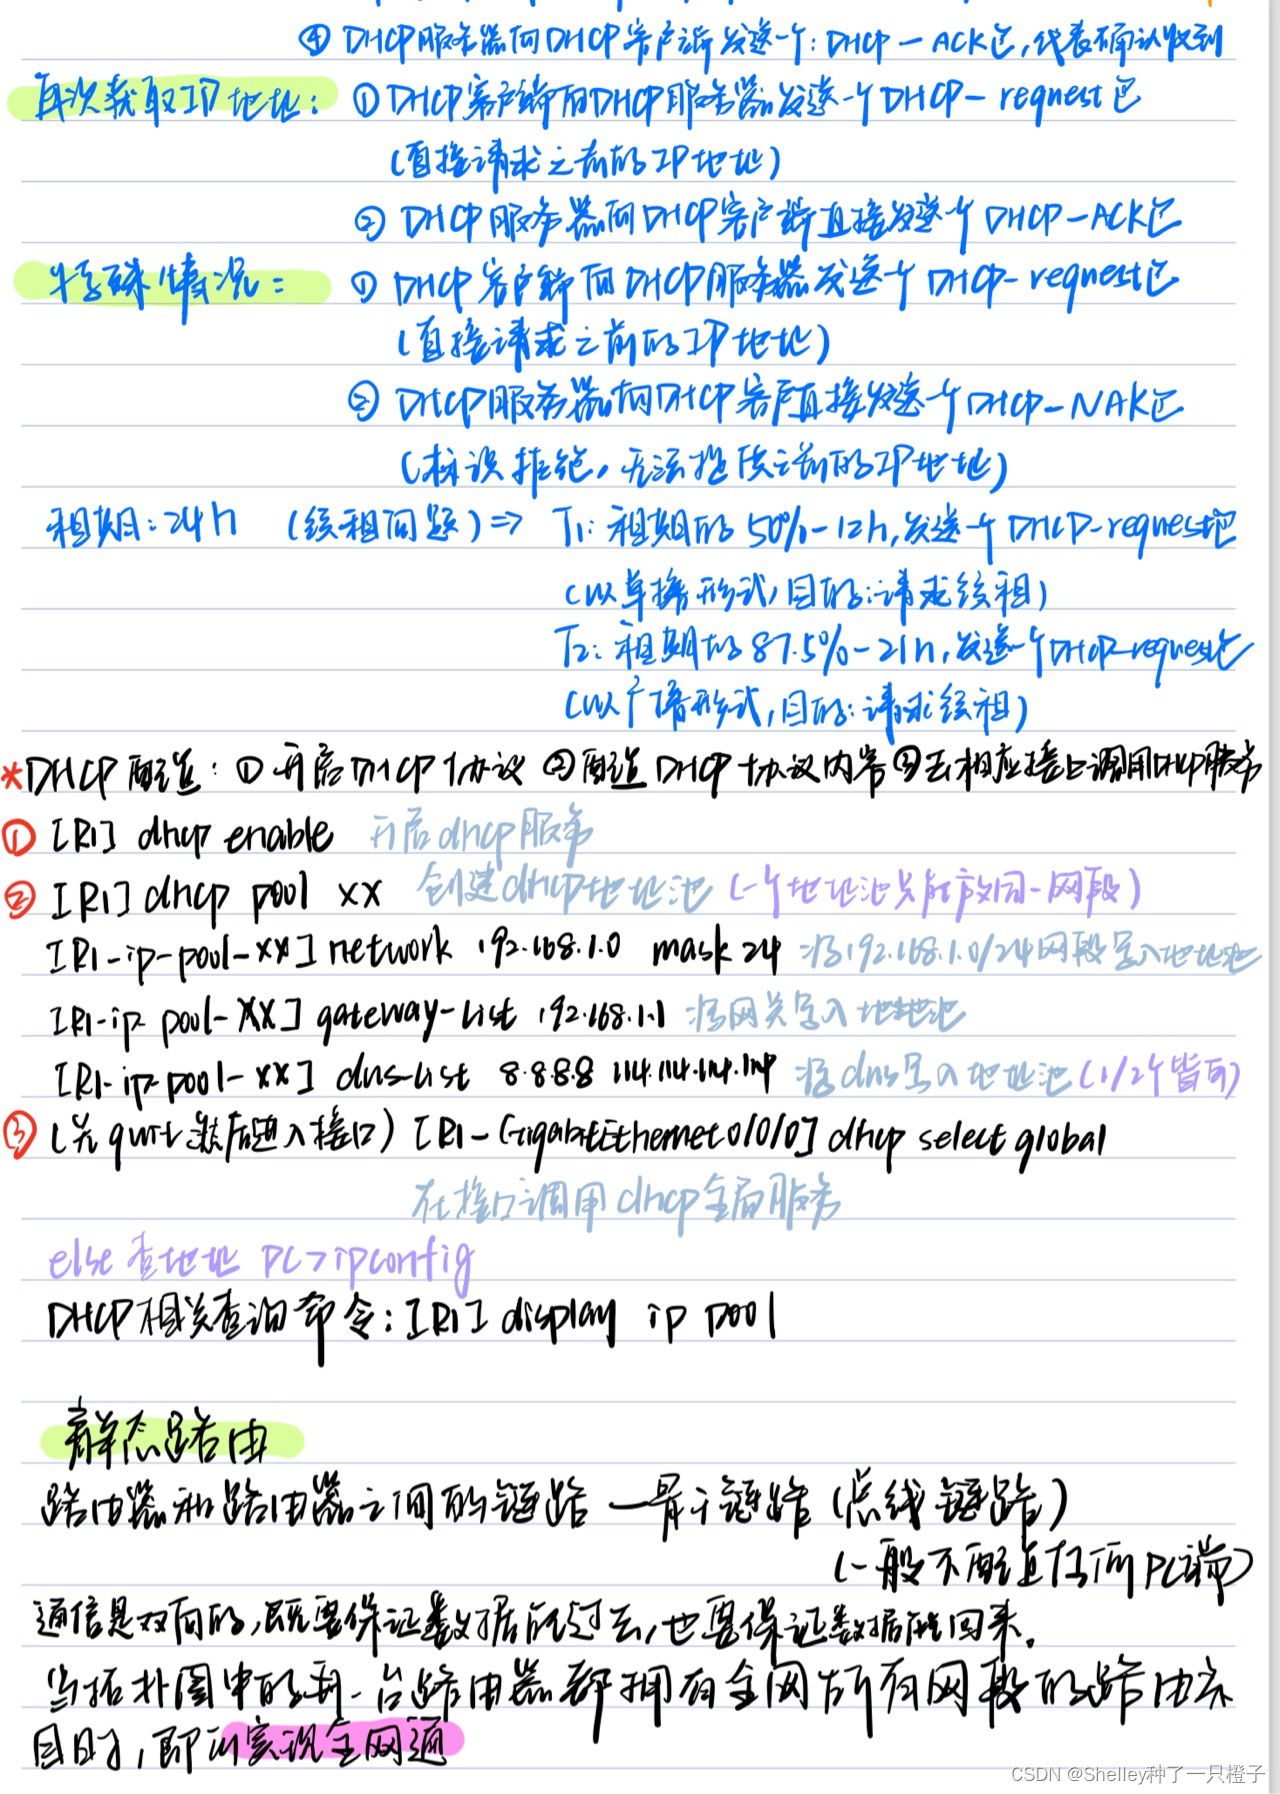 ④ DHCP服务器向DHCP客户端发送一个:DHCP-ACK包,代表确认收到
再次获取IP地址: ① DHCP客户端向DHCP服务器发送一个DHCP-request包
(直接请求之前的IP地址)
② DHCP服务器向DHCP客户端直接发送个DHCP-ACK包
特殊情况: ① DHCP客户端向DHCP服务器发送个DHCP-request包
(直接请求之前的IP地址)
② DHCP服务器向DHCP客户直接发送个DHCP-NAK包
(标识拒绝,无法提供之前的IP地址)
租期:24h (续租问题)=> T1:租期的50%-12h,发送一个DHCP-request包
(以单播形式,目的:请求续租)
T2:租期的87.5%-21h,发送一个DHCP-request包
(以广播形式,目的:请求续租)
*DHCP配置: ①开启DHCP协议 ②配置DHCP协议内容 ③去相应接口调用DHCP服务
① [R1] dhcp enable 开启dhcp服务
② [R1] dhcp pool xx 创建dhcp地址池(一个地址池只能放同一网段)
[R1-ip-pool-xx] network 192.168.1.0 mask 24 将192.168.1.0/24网段写入地址池
[R1-ip pool-xx] gateway-list 192.168.1.1 将网关写入地址池
[R1-ip-pool-xx] dns-list 8.8.8.8 114.114.114.114 将dns写入地址池(1/2个皆可)
③ (先quit然后进入接口) [R1-GigabitEthernet0/0/0] dhcp select global
在接口调用dhcp全局服务
else 查地址 PC>ipconfig
DHCP相关查询命令:[R1] display ip pool
静态路由
路由器和路由器之间的链路 —骨干链路(总线链路)
(一般不配置任何PC端)
通信是双向的,既要保证数据能过去,也要保证数据能回来。
当拓扑图中的每一台路由器都拥有全网所有网段的路由条
目时,即可实现全网通
CSDN @Shelley种了一只橙子